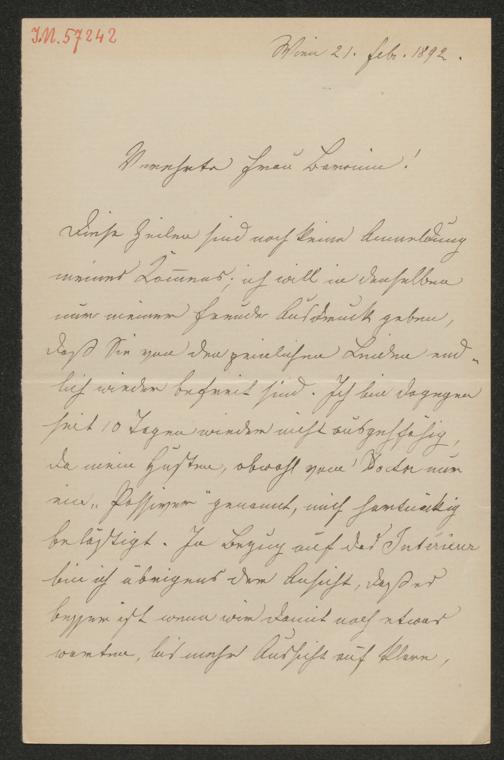 I.N. 57242
Wien 21. Feb. 1892.
Verehrte Frau Baronin!
Diese Zeilen sind noch keine Anmeldung
meines Kom̅ens; ich will in denselben
nur meiner Freude Ausdruck geben,
daß Sie von den peinlichen Leiden end-
lich wieder befreit sind. Ich bin dagegen
seit 10 Tagen wieder nicht ausgehfähig,
da mein Husten, obwohl vom Doctor nur
ein „Passiver" genannt, mich hartnäckig
belästigt. In Bezug auf das Interieur
bin ich übrigens der Ansicht, daß es
besser ist wenn wir damit noch etwas
warten, bis mehr Aussicht auf klare,